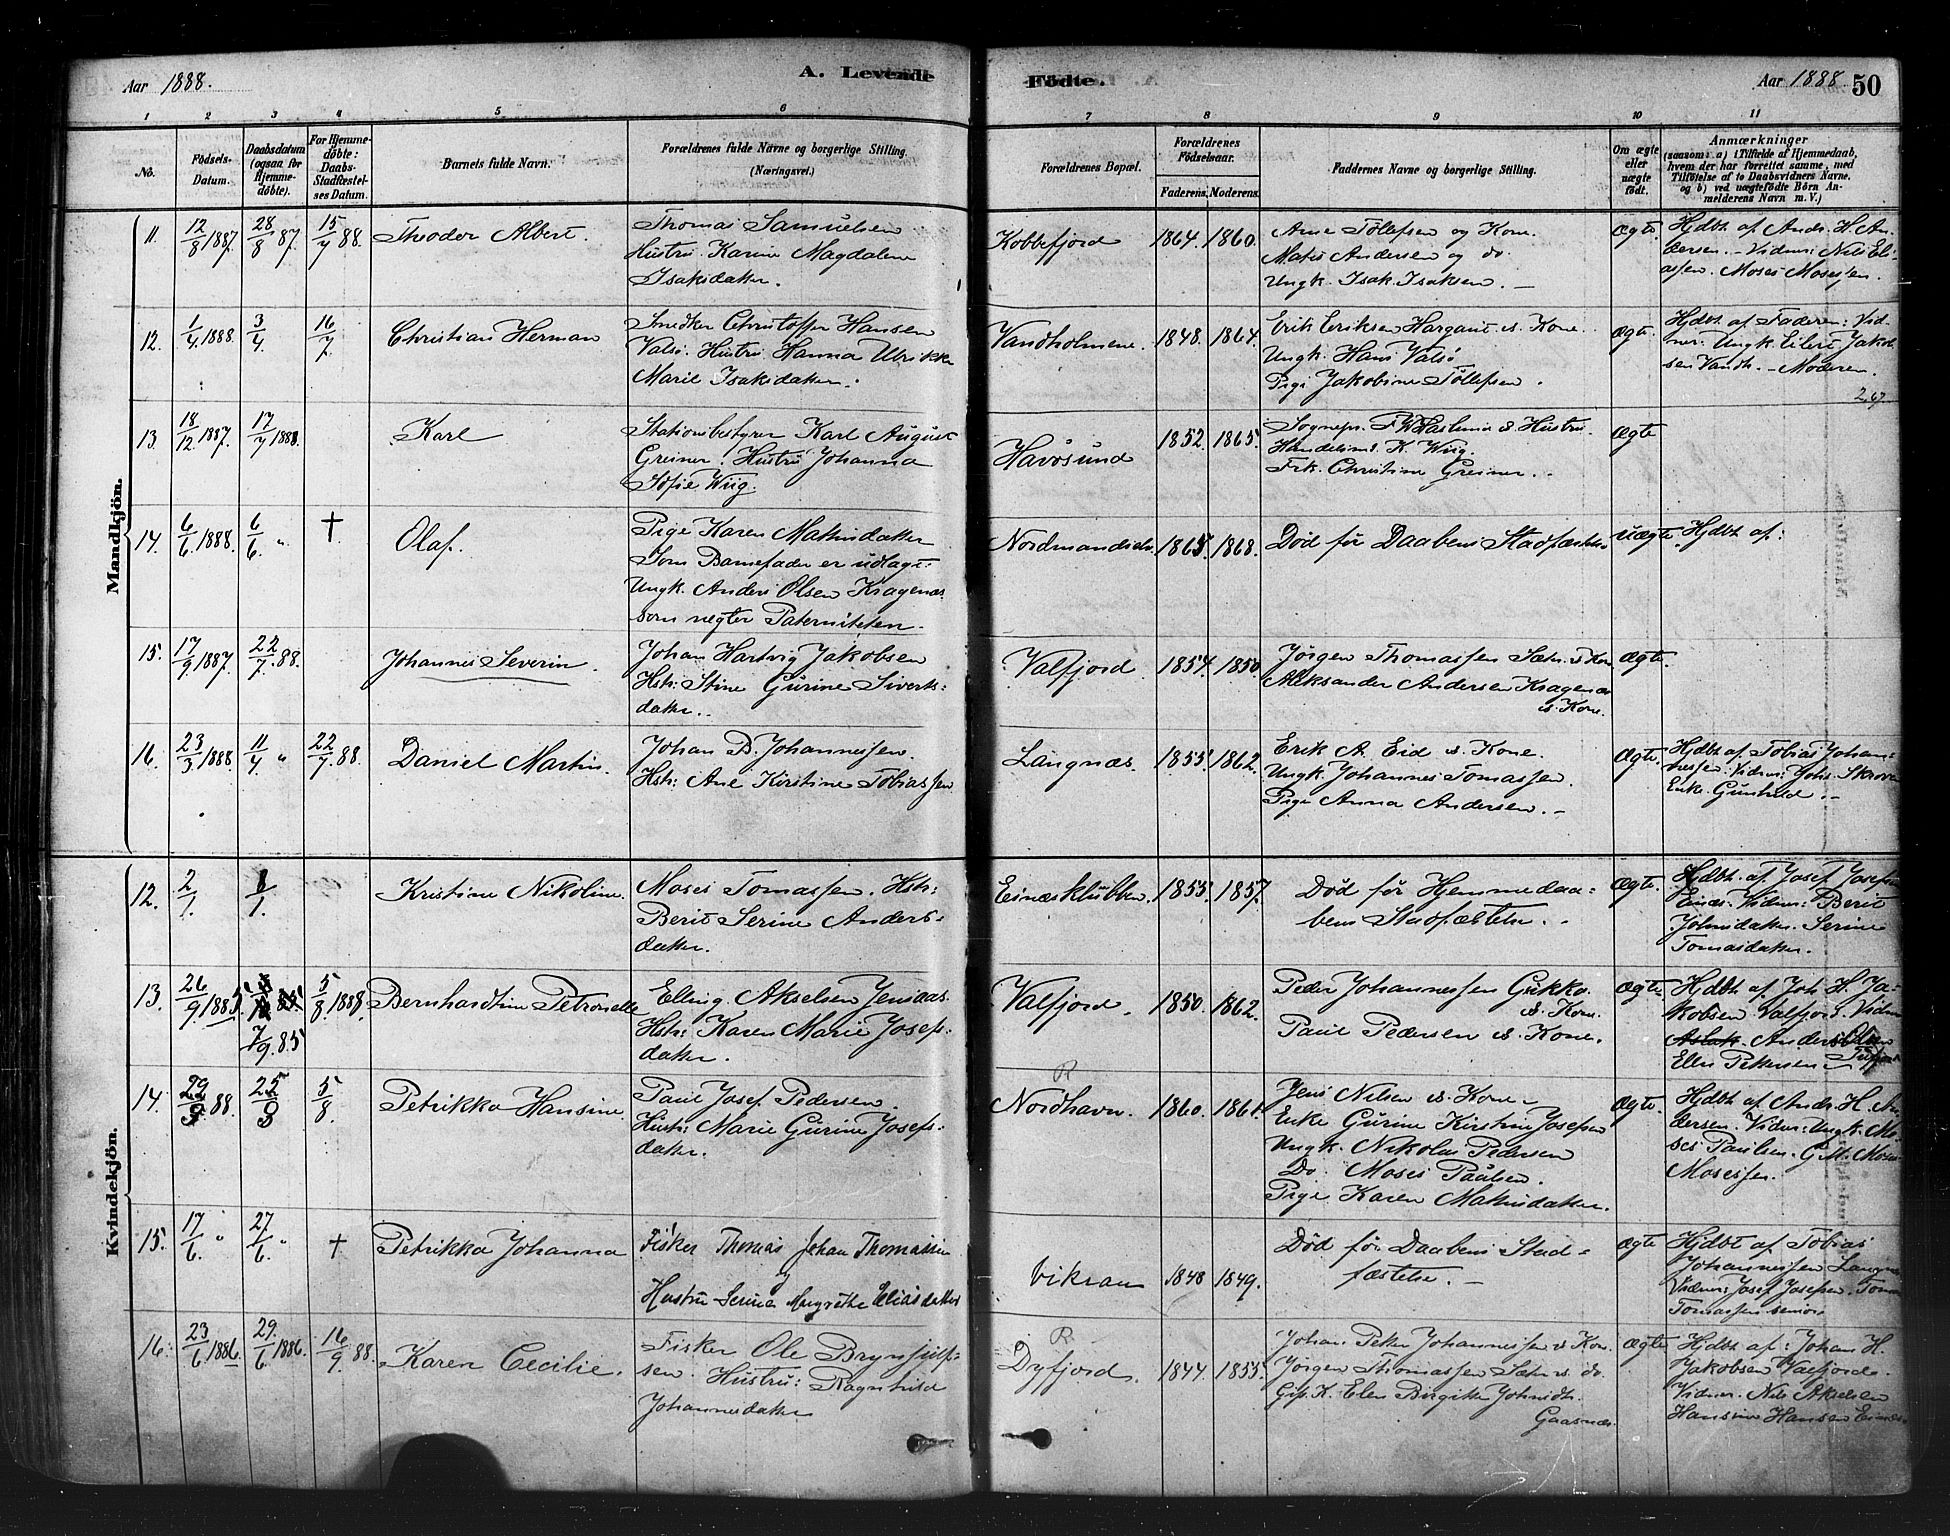 Aar 1888. A. Levende
Födte. Aar 1888 50
1 2 3 4 5 6 7 8 9 10 11
No.
Födsels-Datum.
Daabsdatum (ogsaa for Hjemme-döbte).
For Hjemme-döbte: Daabs-Stadfæstel-ses Datum.
Barnets fulde Navn.
Forældrenes fulde Navne og borgerlige Stilling. (Næringsvei.)
Forældrenes Bopæl.
Forældrenes Födselsaar.
Faderens. Moderens.
Faddernes Navne og borgerlige Stilling.
Om ægte eller uægte födt.
Anmærkninger
(saasom: a) i Tilfælde af Hjemmedaab, hvem der har forrettet samme, med Tilföielse af to Daabsvidners Navne, og b) ved uægtefödte Börn Anmelderens Navn m. V.)
Mandkjön.
11. 12/8 1887. 28/8 87. 15/7 88. Theodor Albert.
Thomas Samuelsen
Hustru Karine Magdalene
Isaksdatter.
Kobbefjord 1864. 1860.
Arne Tollefsen og Kone.
Mats Andersen og do
Ungk. Isak Isaksen. –
Ægte.
Hjdbt af Ands. H. An-
dersen. Vidner: Nils Eli-
assen. Moses Mosessen.
12. 1/4 1888. 3/4. 16/7. Christian Herman
Snedker Christoffer Hansen
Valsö. Hustru Hanna Ulrikke
Marie Isaksdatter.
Vandholmene. 1848. 1864.
Erik Eriksen Hargaut s. Kone.
Ungk. Hans Valsö
Pige Jakobine Töllefsen.
Ægte.
Hjdbt af Faderen: Vid-
ner: Ungk. Eilert Jakob-
sen Vandh. – Moderen.
2.67.
13. 18/12 1887. 17/7 1888. Karl
Stationsbestyrer Karl August
Greiner. Hustru Johanna
Sofie Wiig.
Havösund 1852. 1865.
Sognepr. s. Hustru.
K. Wiig.
Frk. Christine Greiner.
Ægte
14. 6/6 1888. 6/6 " † Olaf.
Pige Karen Mathisdatter
Som Barnefader er udlagt:
Ungk. Anders Olsen Kragenæs
som negter Paterniteten.
1865. 1868.
Död för Daabens Stadfæstelse
uægte. Hjdbt af:
15. 17/9 1887. 22/7 88. Johannes Severin.
Johan Hartvig Jakobsen
Hstr: Stine Gurine Siverts-
datter.
Valfjord. 1854. 1850.
Jörgen Thomassen s. Kone
Aleksander Andersen Kragenæs
s. Kone.
Ægte.
16. 23/3 1888. 11/4 " 22/7 88. Daniel Martin.
Johan B. Johannessen.
Hstr: Ane Kirstine Tobiassen
Langnæs. 1855. 1862.
Erik A. Eid s. Kone.
Ungk. Johannes Tomassen
Pige Anna Andersen. –
Ægte.
Hjdbt af Tobias Johan-
nessen. Vidner: Johs.
Enke Gunhild. –
Kvindekjön.
12. 2/1. 8/1. Kristine Nikoline.
Moses Tomassen. Hstr:
Berit Serine Anders-
datter.
Einæsklubben. 1855. 1857.
Död för Hjemmedaa-
bens Stadfæstelse. –
Ægte.
Hjdbt. af Josef Josefsen
Einæs. Vidner: Berit
Johnsdatter. Serine
Tomasdatter.
13. 26/9 1885. 7/9. 85 5/8 1888. Bernhardtine Petronelle
Elling Akselsen
Hstr: Karen Marie Josefs-
datter.
Valfjord. 1850. 1862.
Peder Johannessen Gukko
s. Kone.
Paul Pedersen s. Kone.
Ægte.
Hjdbt af Joh. H. Ja-
kobsen Valfjord. Vidner
Anders Olsen
Ellen Pettersen
14. 88. 5/8. Petrikka Hansine.
Paul Josef Pedersen.
Hustr: Marie Gurine Josefs-
datter.
R
Nordhavn. 1860. 1861.
Jens Nilsen s. Kone
Enke Gurine Kirstine Josefsen
Ungk. Nikolus Pedersen
Do Moses Paulsen.
Pige Karen Mathisdatter.
Ægte.
Hjdbt af Ands. H. An-
dersen. Vidner: Ungk. Mo-
ses Paulsen. G. M. Moses
Mosessen.
15. 17/6 " 27/6 " † Petrikka Johanna
Fisker Thomas Johan Thomassen
Hustru Serine Magrethe Eliasdatter
Vikran 1848 1849.
Död för Daabens Stad-
fæstelse. –
Ægte
Hjdbt af Tobias
Johannessen Langnæs
Vidner: Josef Josefsen. Tomas
Tomassen senior.
16. 23/6 1886. 29./6 1886. 16/9 88. Karen Cecilie.
Fisker Ole Brynjulf-
sen. Hustru: Ragnhild
Johannesdatter
R.
Dyfjord. 1844. 1855.
Johan Petter Johannessen s. Kone.
Jörgen Thomassen s. do.
Gift K. Elen Birgitte Johnsdtr.
Gaasnæs.
Ægte
Hjdbt af: Johan H.
Jakobsen Valfjord.
Vidner. Nils Akselsen
Hansine Hansen Einæs.